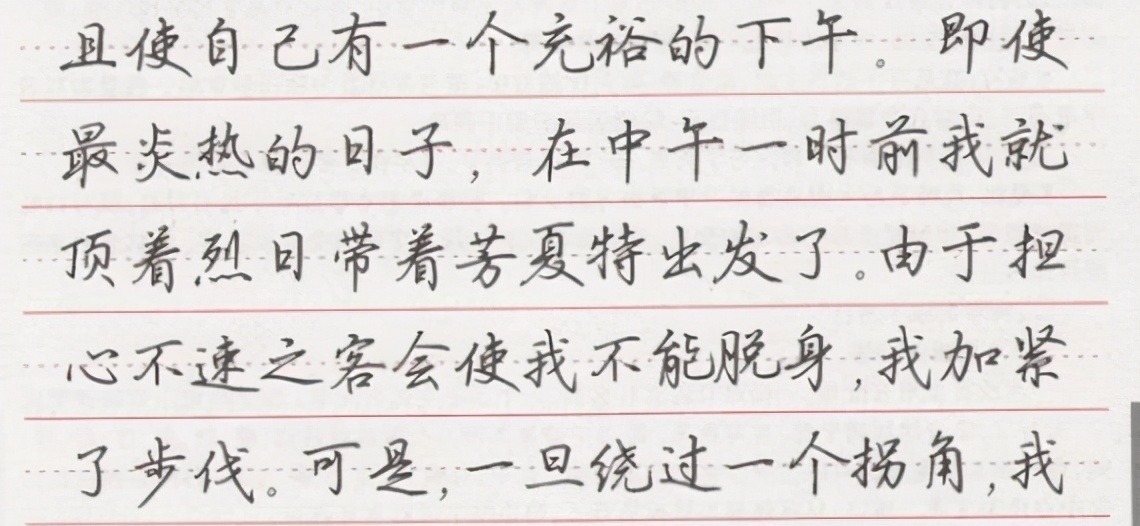 且使自己有一个充裕的下午。即使
最炎热的日子，在中午一时前我就
顶着烈日带着芳夏特出发了。由于担
心不速之客会使我不能脱身，我加紧
了步伐。可是，一旦绕过一个拐角，我